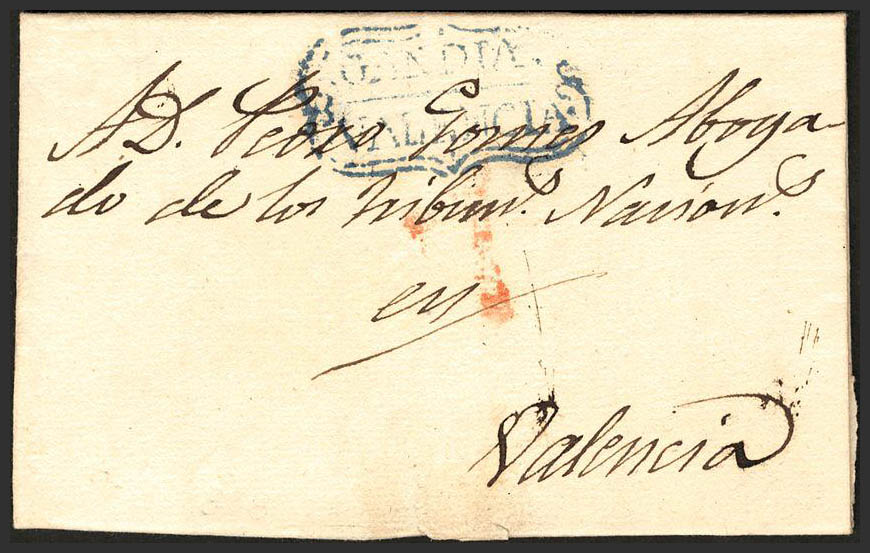 GANDIA
VALENCIA
A D. Pedro Gomes Aboga-
do de los tribun.s Nacion.s
en
Valencia